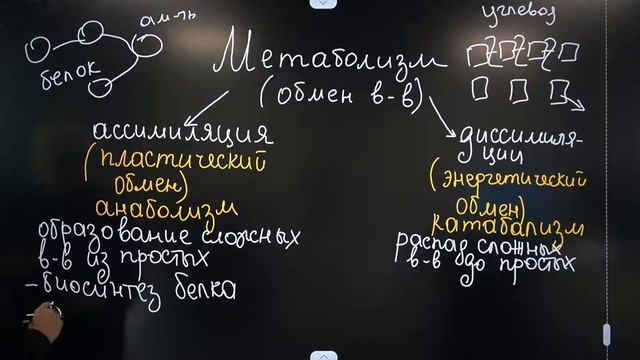 ам-ты
белок
углевод
Метаболизм
(обмен в-в)
ассимиляция
(пластический
обмен)
анаболизм
образование сложных
в-в из простых
- биосинтез белка
диссимиля-
ции
(энергетический
обмен)
катаболизм
распад сложных
в-в до простых